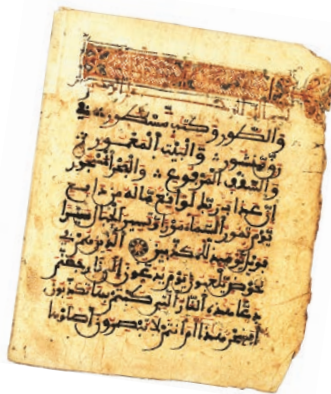 والطور وكتب مسطور في
رق منشور والبيت المعمور
والسقف المرفوع والبحر المسجور
ان عذاب ربك لواقع ماله من دافع
يوم تمور السماء مورا وتسير الجبال سيرا
فويل يومئذ للمكذبين الذين هم في
خوض يلعبون يوم يدعون الى نار جهنم
دعا هذه النار التي كنتم بها تكذبون
افسحر هذا ام انتم لا تبصرون اصلوها